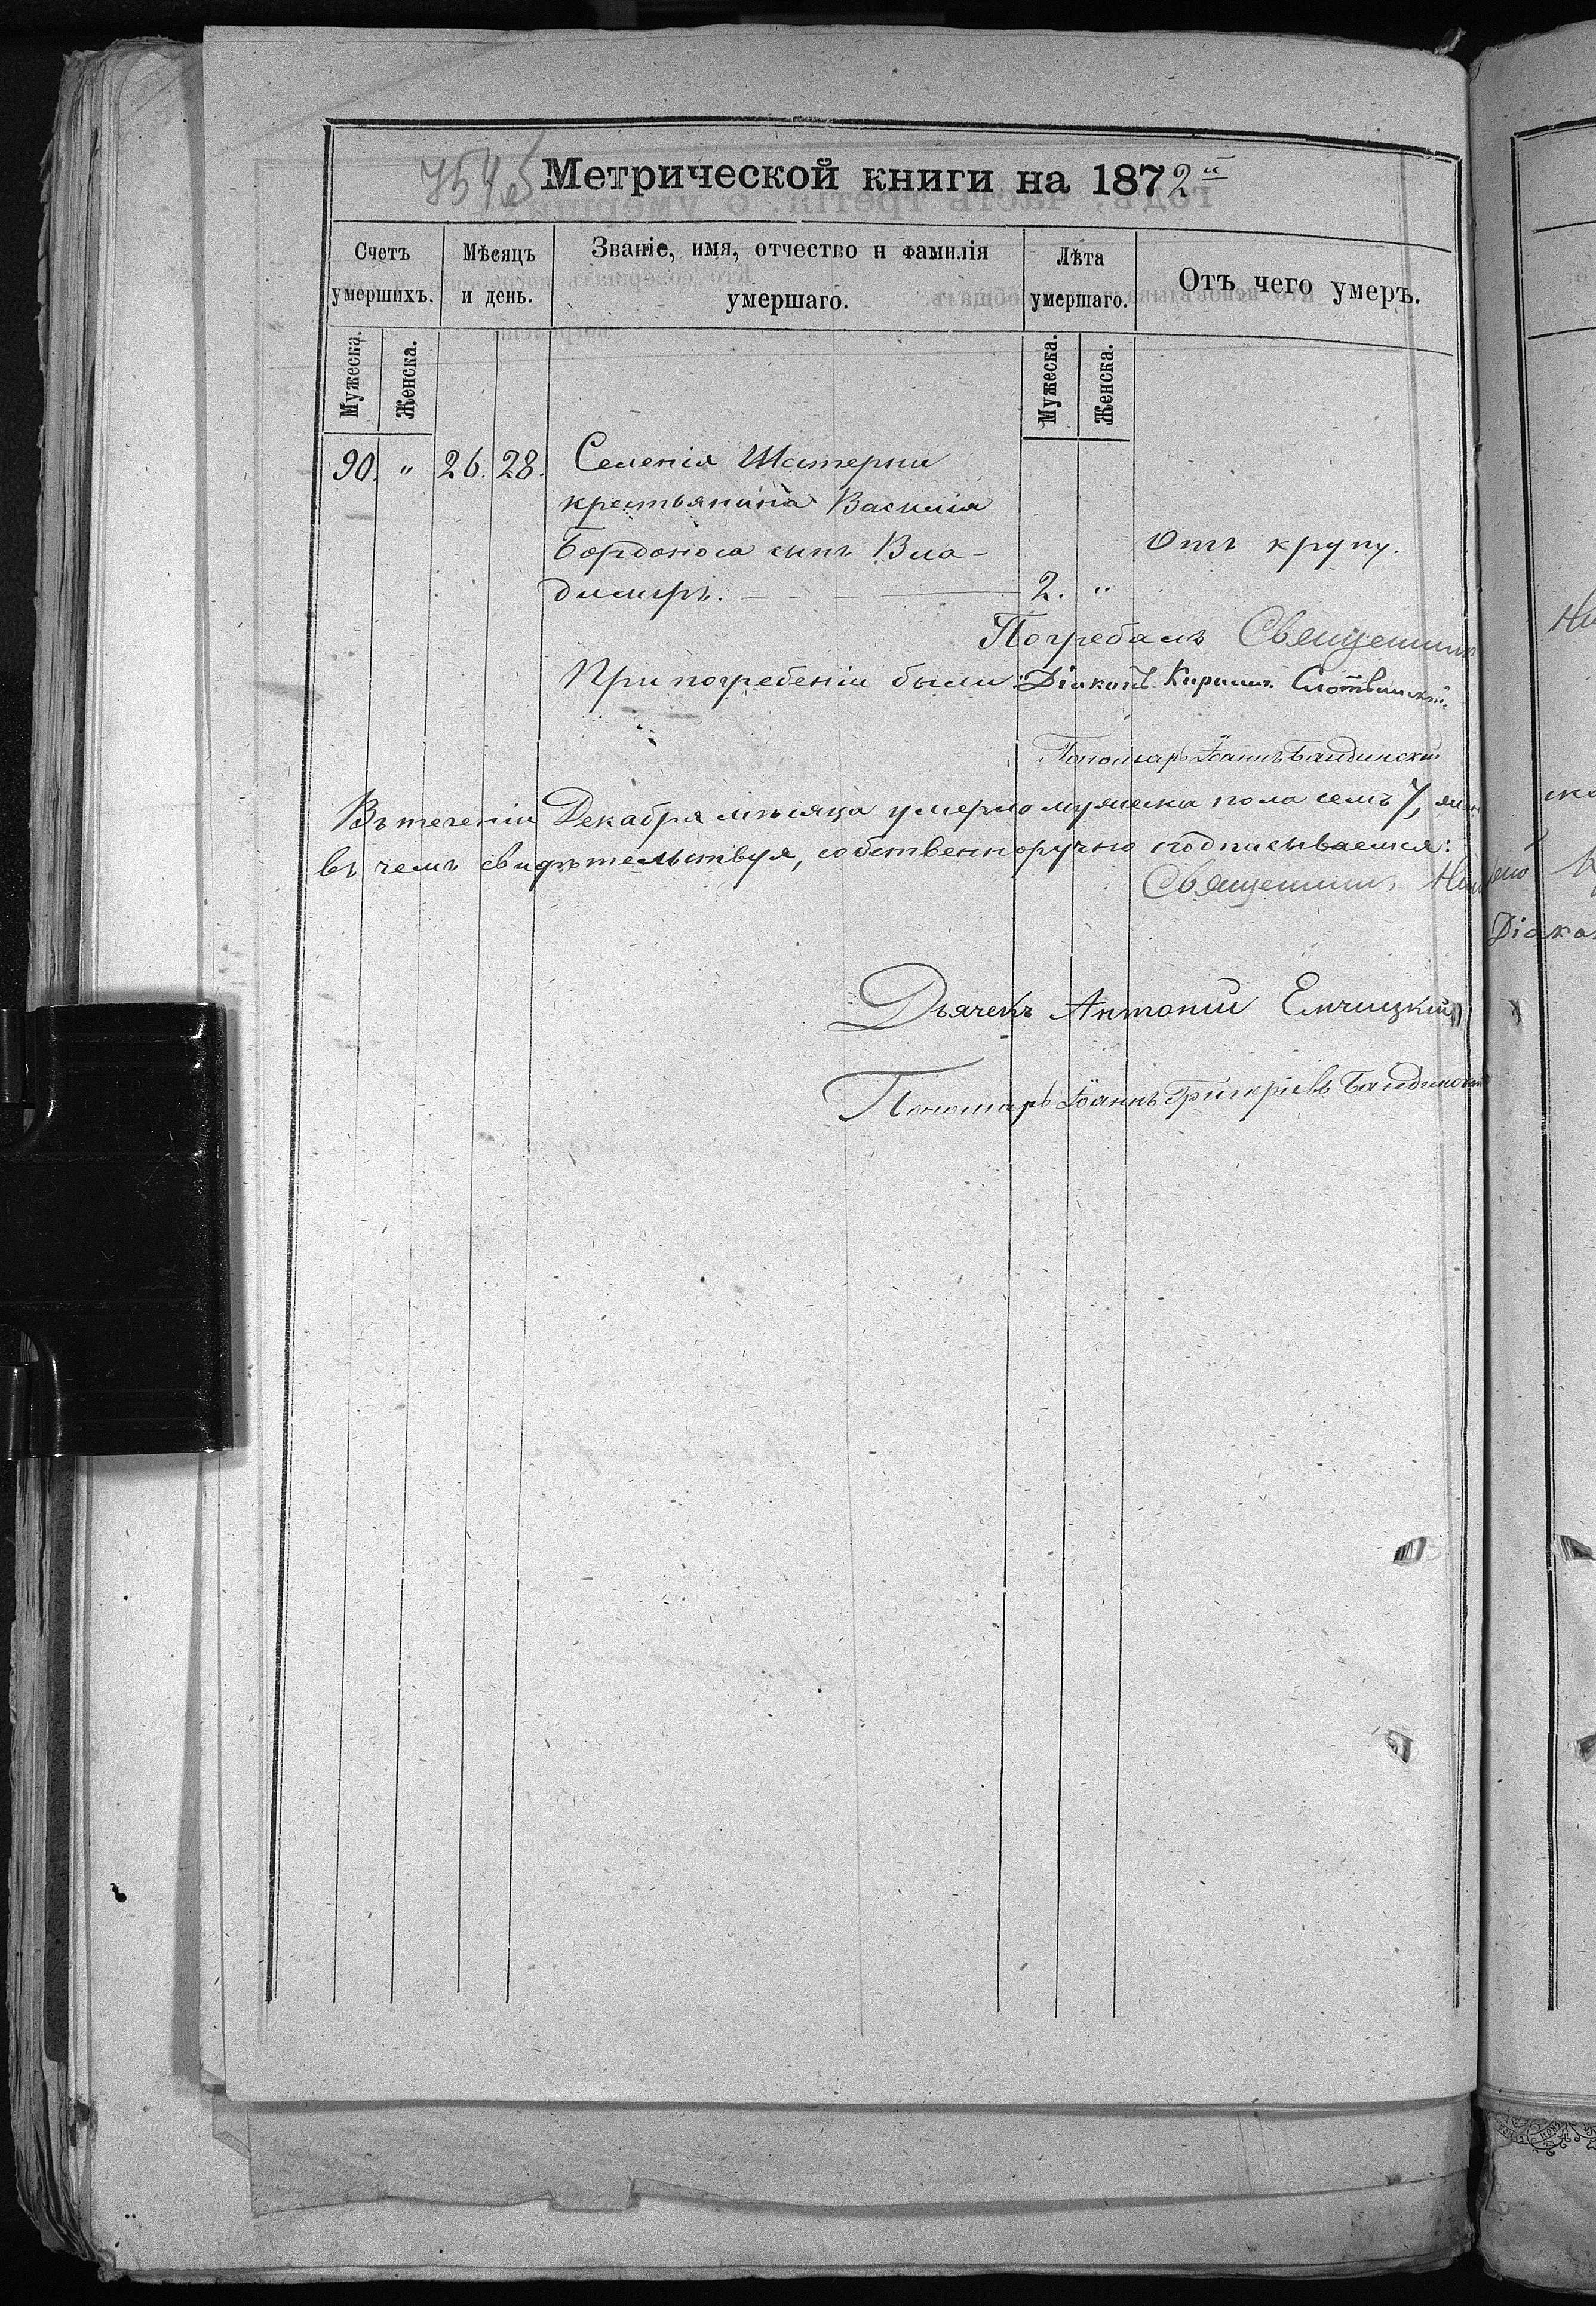 754об
Метрической книги на 1872й
Счетъ умершихъ. Мѣсяцъ и день. Званіе, имя, отчество и фамилія умершаго. Лѣта умершаго. Отъ чего умеръ.
Мужеска. Женска. Мужеска. Женска.
90. " 26. 28. Селенія Шатерни
крестьянина Василія
Бордоноса сынъ Вла- Отъ крупу.
димиръ. 2. "
Погребалъ Священникъ
При погребеніи были: Діаконъ Кириллъ Слотвинскій
Пономарь Іоаннъ Бандинскій
Въ теченіи Декабря мѣсяца умерло мужеска пола семь 7,
въ чемъ свидѣтельствуя, собственноручно подписываемся:
Священникъ
Діако
Дьячекъ Антоній Емчицкій
Пономарь Іоаннъ Григоріевъ Бандинскій